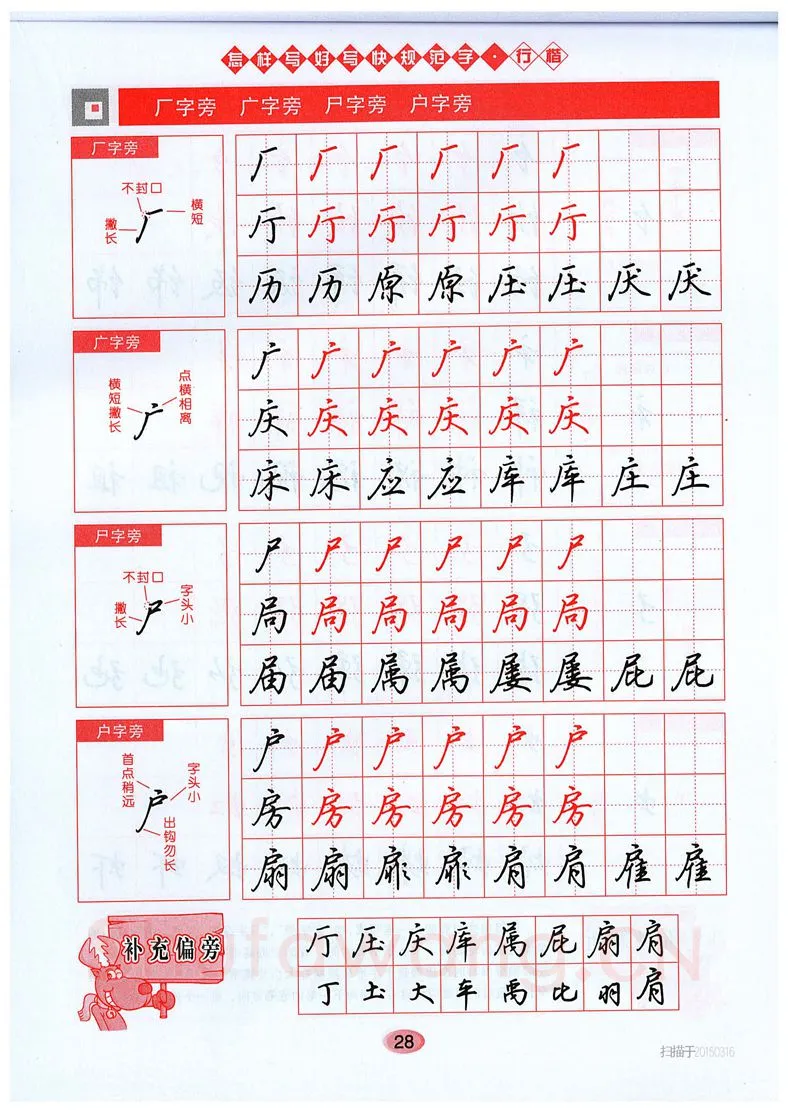 怎样写好写快规范字·行楷
厂字旁 广字旁 尸字旁 户字旁
厂字旁
不封口
横短
撇长
厂 厂 厂 厂 厂 厂
厅 厅 厅 厅 厅 厅
历 历 原 原 压 压 厌 厌
广字旁
点横相离
横短撇长
广 广 广 广 广 广
庆 庆 庆 庆 庆 庆
床 床 应 应 库 库 庄 庄
尸字旁
不封口
字头小
撇长
尸 尸 尸 尸 尸 尸
局 局 局 局 局 局
届 届 属 属 屡 屡 屁 屁
户字旁
首点稍远
字头小
出钩勿长
户 户 户 户 户 户
房 房 房 房 房 房
扇 扇 扉 扉 肩 肩 雇 雇
补充偏旁
厅 压 庆 库 属 屁 扇 肩
丁 土 大 车 禹 比 羽 肩
shufawang.CN
28
扫描于20150316